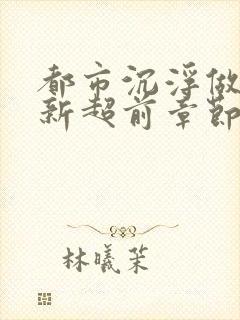 都市沉浮做
新超前章節
林曦茉